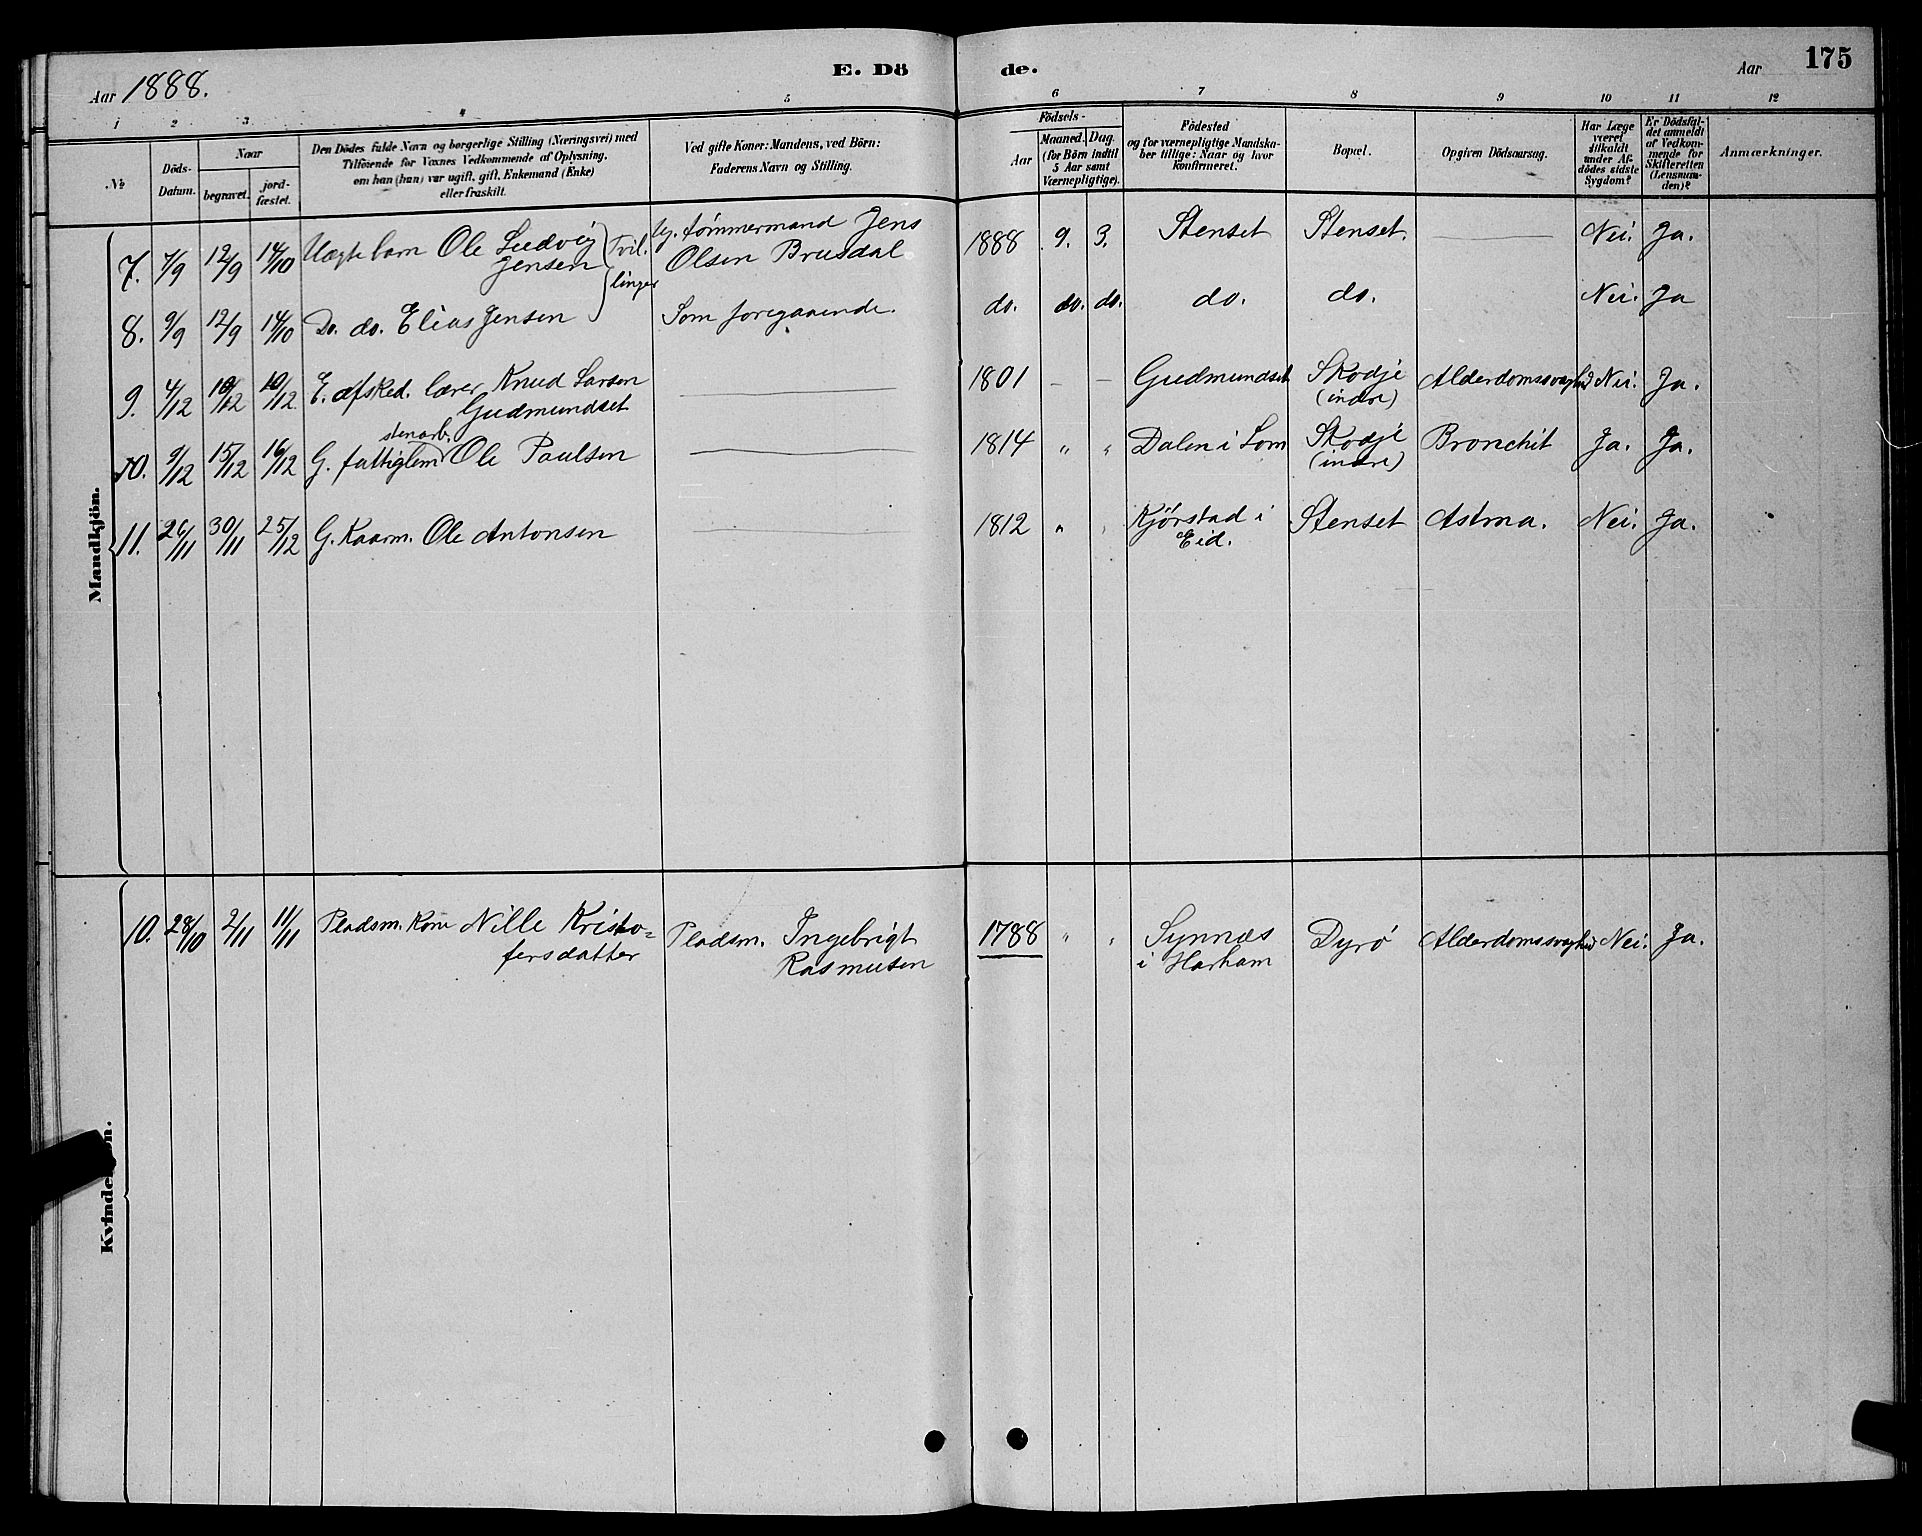 Aar 1888.
E. Dö
de.
Aar
175
1 2 3 4 5 6 7 8 9 10 11 12
№
Döds-
Datum.
Naar
begravet.
jord-
fæstet.
Den Dödes fulde Navn og borgerlige Stilling (Næringsvei) med
Tilföiende for Voxnes Vedkommende af Oplysning,
om han (hun) var ugift, gift, Enkemand (Enke)
eller fraskilt.
Ved gifte Koner: Mandens, ved Börn:
Faderens Navn og Stilling.
Födsels-
Aar
Maaned. Dag.
(for Börn indtil
5 Aar samt
Værnepligtige).
Födested
og for værnepligtige Mandska-
ber tillige: Naar og hvor
konfirmeret.
Bopæl.
Opgiven Dödsaarsag.
Har Læge
været
tilkaldt
under Af-
dödes sidste
Sygdom?
Er Dödsfal-
det anmeldt
af Vedkom-
mende for
Skifteretten
(Lensman-
den)?
Anmærkninger.
Mandkjön.
7. 7/9 12/9 14/10 Uægte barn Ole Ludvig
Jensen
Tvil-
linger
Ug. tømmermand Jens
Olsen Brusdal
1888 9. 3. Stenset Stenset. — Nei. Ja.
8. 9/9 12/9 14/10 Do. do. Elias Jensen Som foregaaende. do. do. do. do. do. Nei. Ja
9. 4/12 10/12 10/12 E. afsked. lærer Knud Larsen
Gudmundset
— 1801 – – Gudmundset Skodje
(indre)
Alderdomssvaghed Nei. Ja.
stenarb.
10. 9/12 15/12 16/12 G. fattiglem Ole Paulsen — 1814 " " Dalen i Lom Skodje
(indre)
Bronchit Ja. Ja.
11. 26/11 30/11 25/12 G. Kaarm. Ole Antonsen — 1812 " " Kjørstad i
Eid.
Stenset Astma. Nei. Ja.
Kvinde
n.
10. 28/10 2/11 11/11 Pladsm. Kone Nille Kristo-
fersdatter
Pladsm. Ingebrigt
Rasmusen
1788 " " Synnæs
i Harham
Dyrø Alderdomssvaghed Nei. Ja.